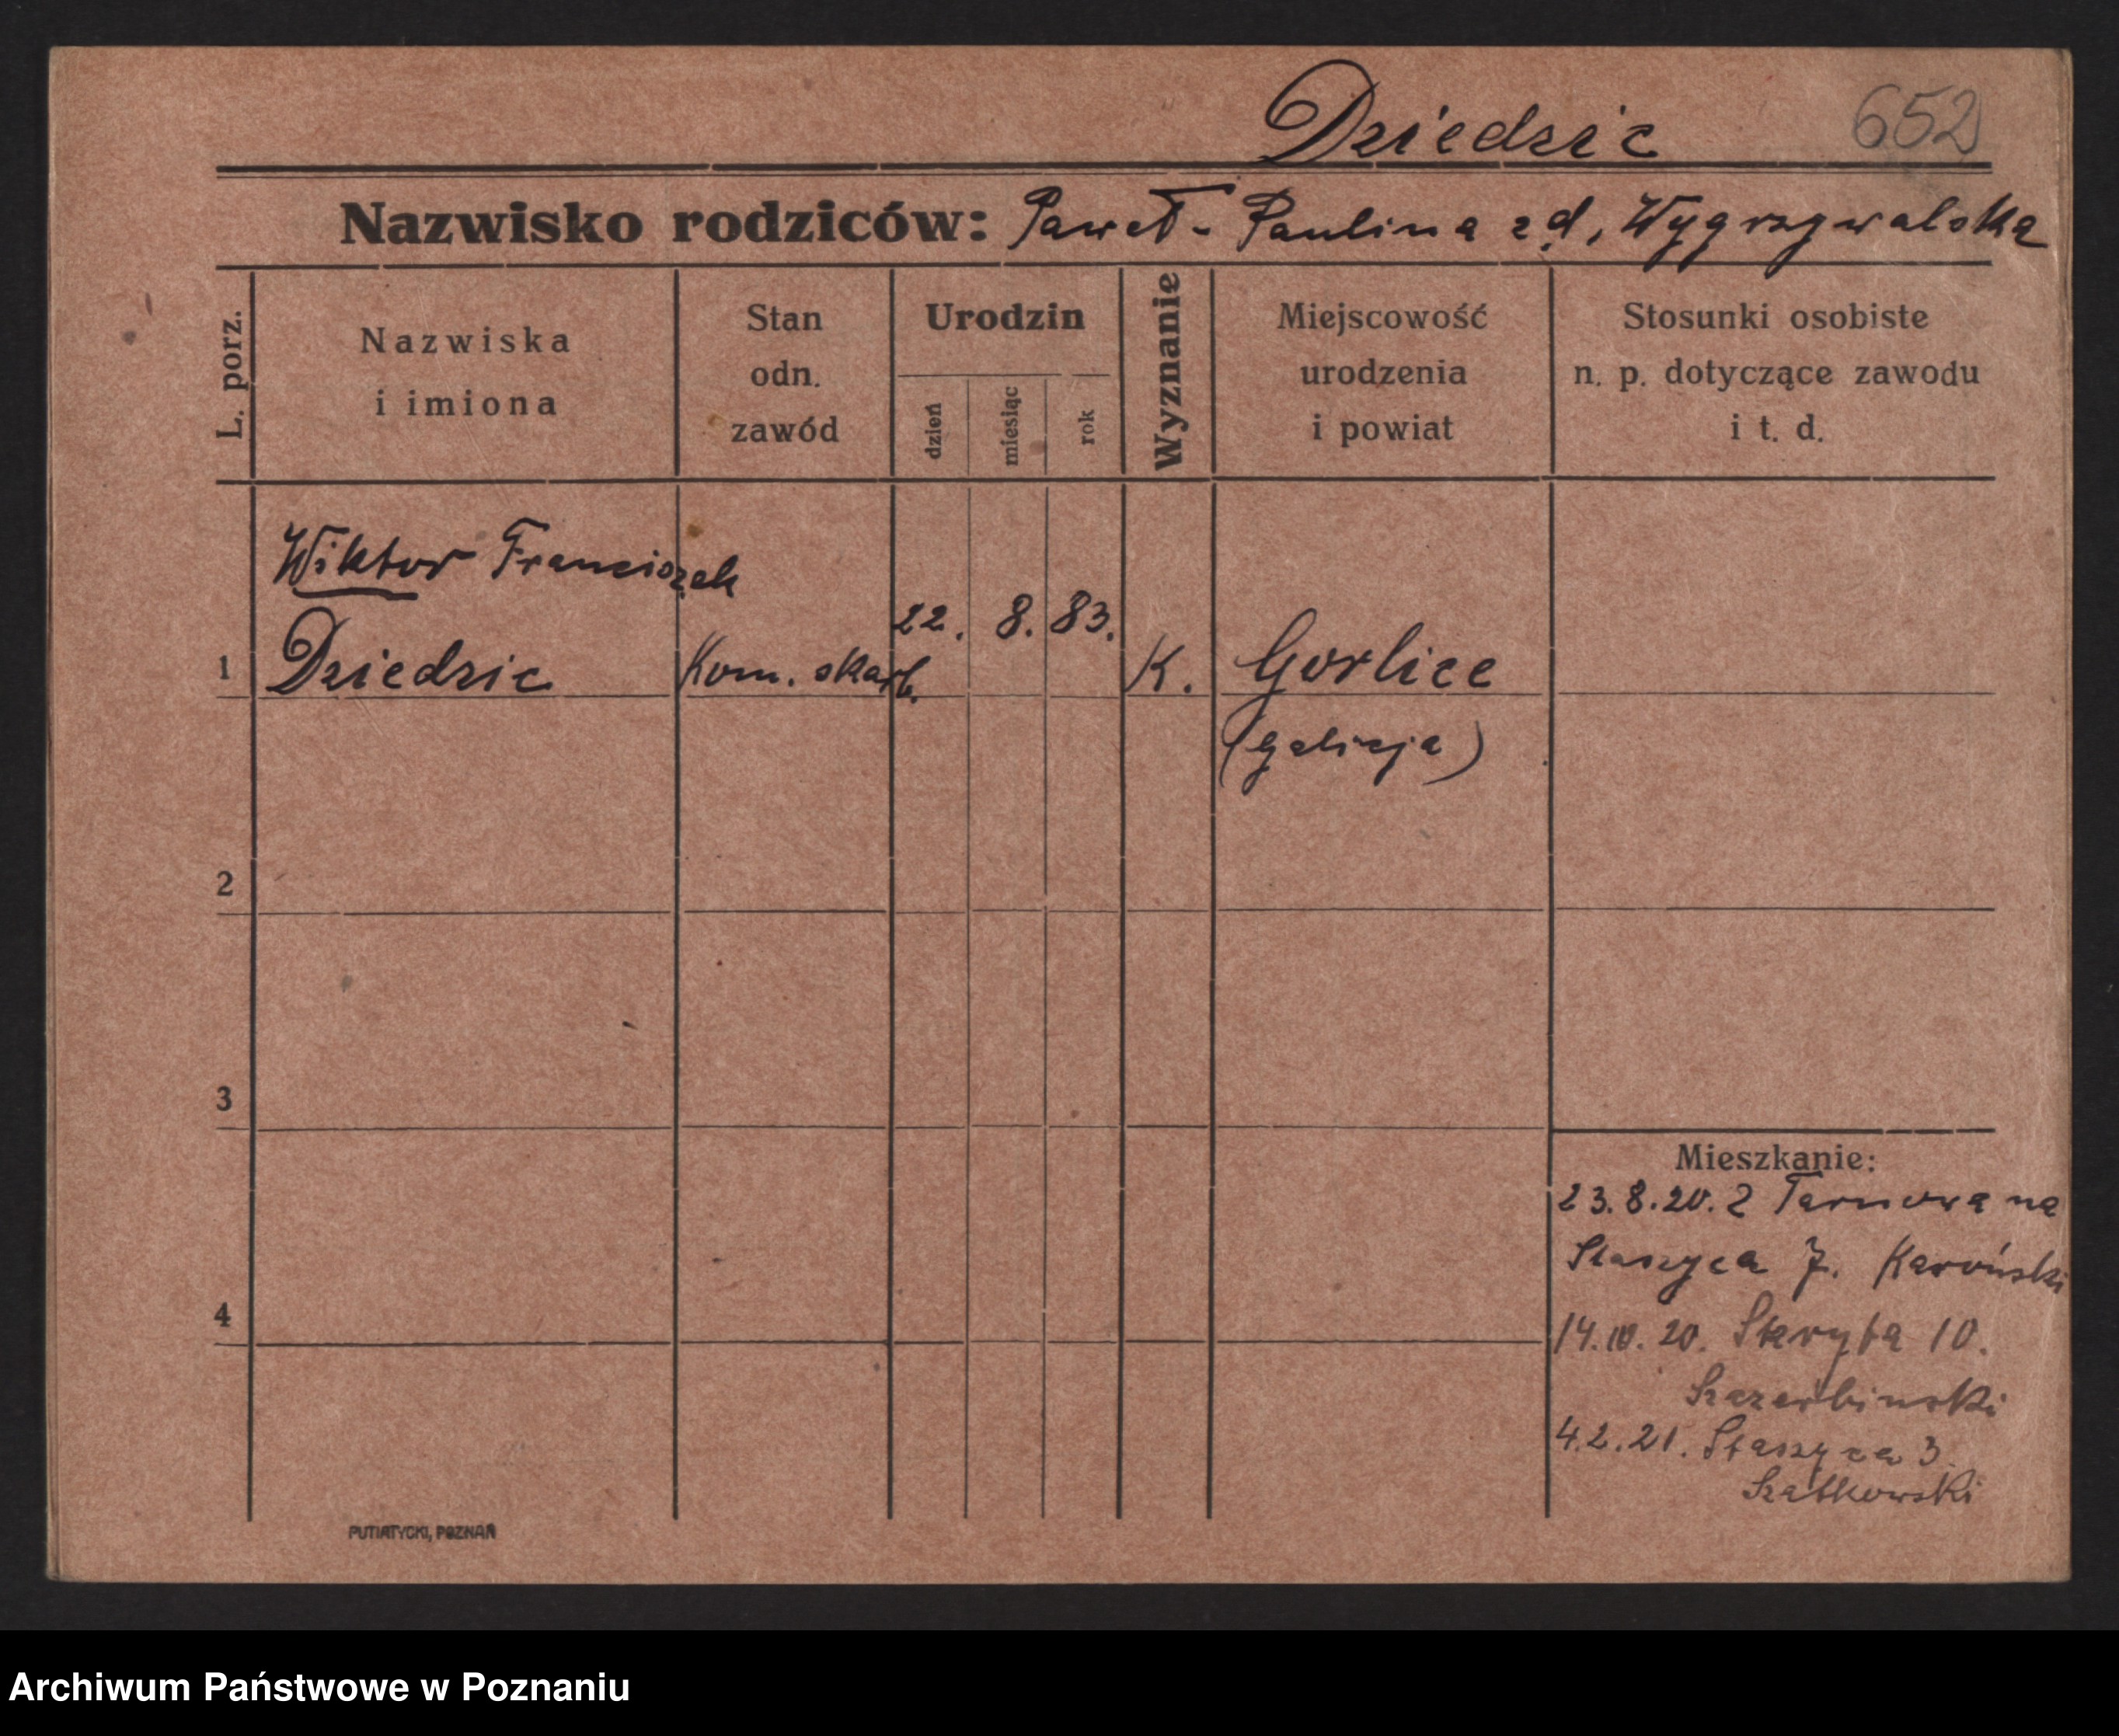 Dziedzic 652
Nazwisko rodziców: Paweł - Paulina z d. Wygrzywalska
L. porz.
Nazwiska
i imiona
Stan
odn.
zawód
Urodzin
dzień
miesiąc
rok
Wyznanie
Miejscowość
urodzenia
i powiat
Stosunki osobiste
n. p. dotyczące zawodu
i t. d.
Wiktor Franciszek
22. 8. 83.
1 Dziedzic Kom. skarb. K. Gorlice
(Galicja)
2
3
4
Mieszkanie:
23.8.20. Z Tarnowa na
Staszyca 7. Karoński
14.10.20. Skryta 10.
Szczerbinski
4.2.21. Staszyca 3.
Szatkowski
PUTIATYCKI, POZNAŃ
Archiwum Państwowe w Poznaniu